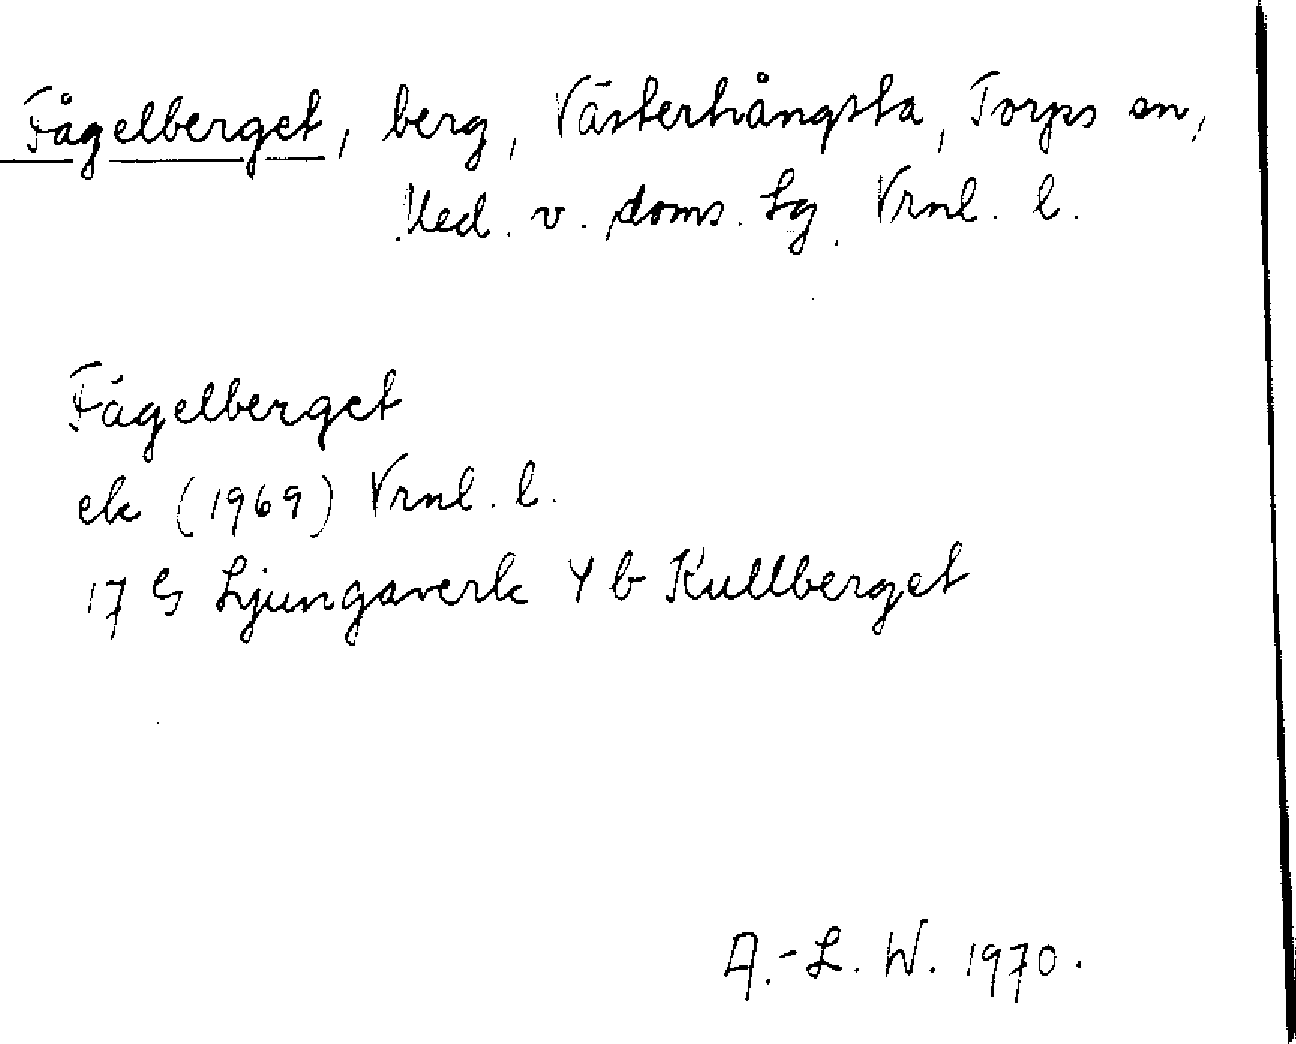 Fågelberget, berg, Västerhångsta, Torps sn,
Med. v. doms. lg. Vrnl. l.
Fågelberget
ek (1969) Vrnl. l.
17 G Ljungaverk 4 b Kullberget
A.-L. W. 1970.